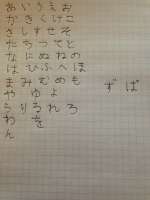 あいうえお
かきくけこ
さしすせそ
たちつてと
なにぬねの
はひふへほ
まみむめも
や ゆ よ
らりるれろ
わ を
ん
ず ば